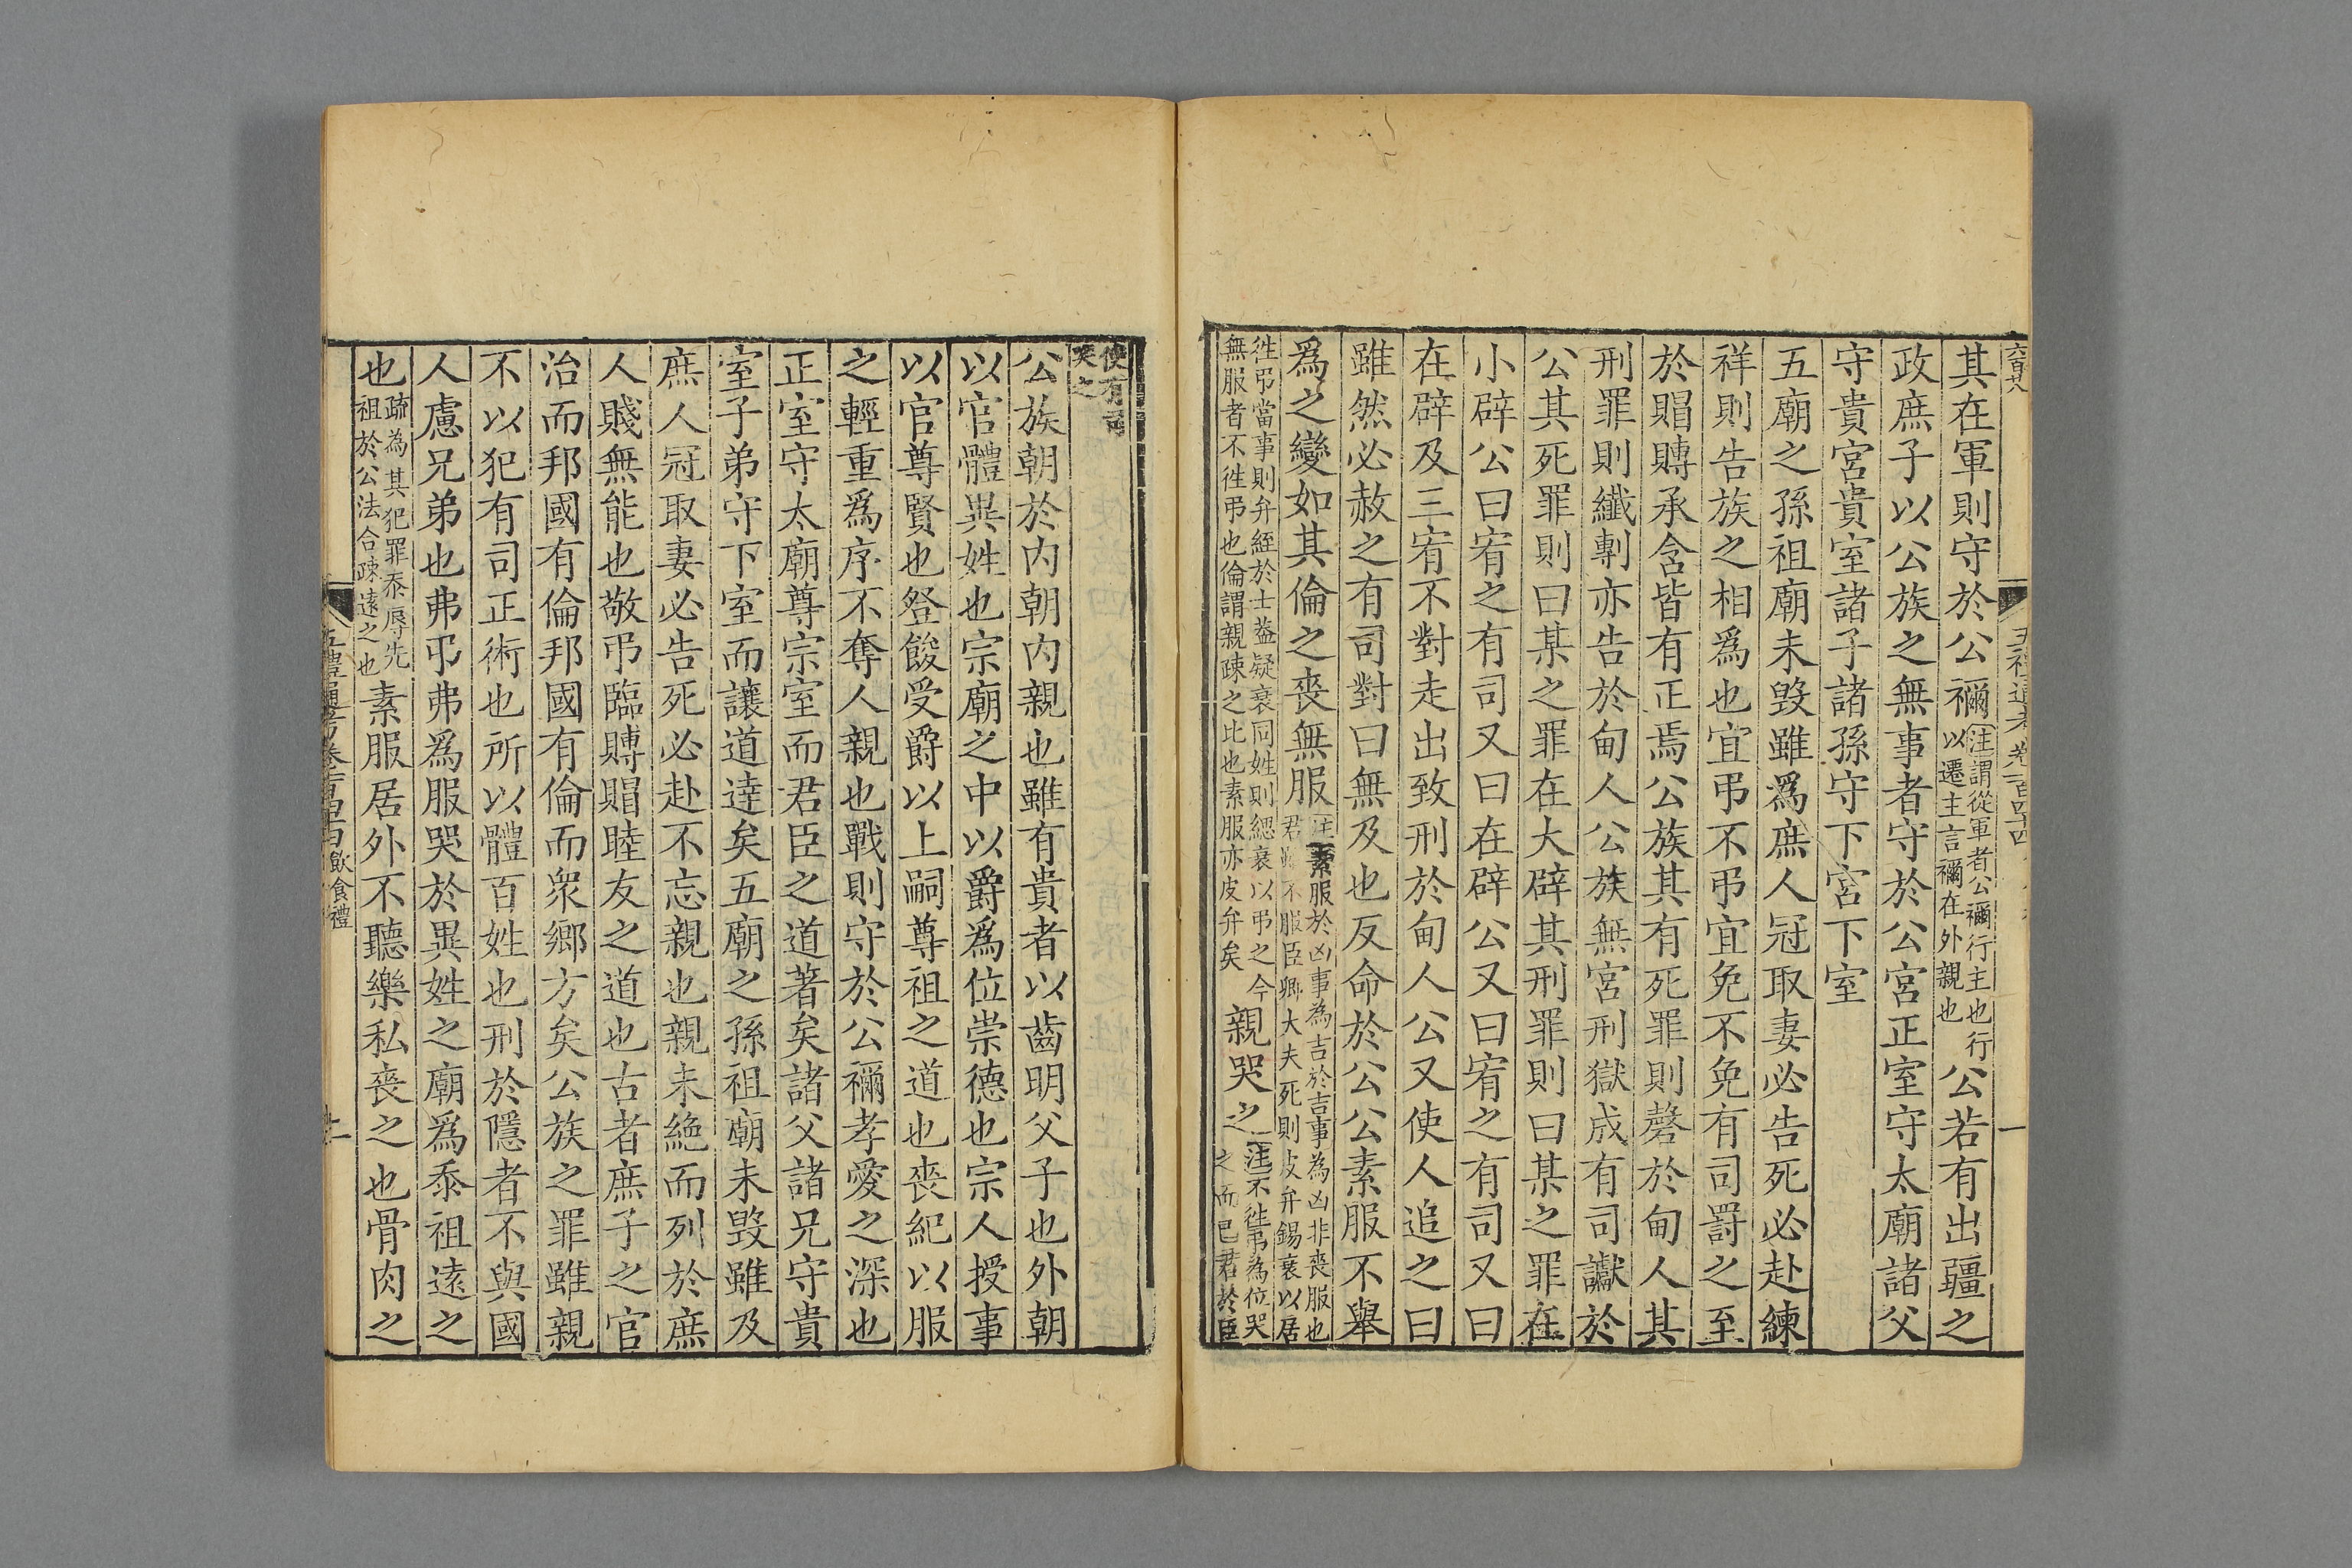 其在軍則守於公禰注謂從軍者公禰行主也行以遷主言禰在外親也公若有出疆之
政庶子以公族之無事者守於公宮正室守太廟諸父
守貴宮貴室諸子諸孫守下宮下室
五廟之孫祖廟未毀雖爲庶人冠取妻必告死必赴練
祥則告族之相爲也宜弔不弔宜免不免有司罰之至
於賵賻承含皆有正焉公族其有死罪則磬於甸人其
刑罪則纖剸亦告於甸人公族無宮刑獄成有司讞於
公其死罪則曰某之罪在大辟其刑罪則曰某之罪在
小辟公曰宥之有司又曰在辟公又曰宥之有司又曰
在辟及三宥不對走出致刑於甸人公又使人追之曰
雖然必赦之有司對曰無及也反命於公公素服不舉
爲之變如其倫之喪無服注素服於凶事為吉於吉事為凶非喪服也君雖不服臣卿大夫死則皮弁錫衰以居
往弔當事則弁絰於士蓋疑衰同姓則緦衰以弔之今無服者不往弔也倫謂親疎之比也素服亦皮弁矣親哭之注不往弔為位哭之而已君於臣
使有司哭之
公族朝於內朝內親也雖有貴者以齒明父子也外朝
以官體異姓也宗廟之中以爵爲位崇德也宗人授事
以官尊賢也登餕受爵以上嗣尊祖之道也喪紀以服
之輕重爲序不奪人親也戰則守於公禰孝愛之深也
正室守太廟尊宗室而君臣之道著矣諸父諸兄守貴
室子弟守下室而讓道達矣五廟之孫祖廟未毀雖及
庶人冠取妻必告死必赴不忘親也親未絶而列於庶
人賤無能也敬弔臨賻賵睦友之道也古者庶子之官
治而邦國有倫邦國有倫而衆鄉方矣公族之罪雖親
不以犯有司正術也所以體百姓也刑於隱者不與國
人慮兄弟也弗弔弗爲服哭於異姓之廟爲忝祖遠之
也疏為其犯罪忝辱先祖於公法合疎遠之也素服居外不聽樂私喪之也骨肉之
五禮通考卷一百四十四飲食禮